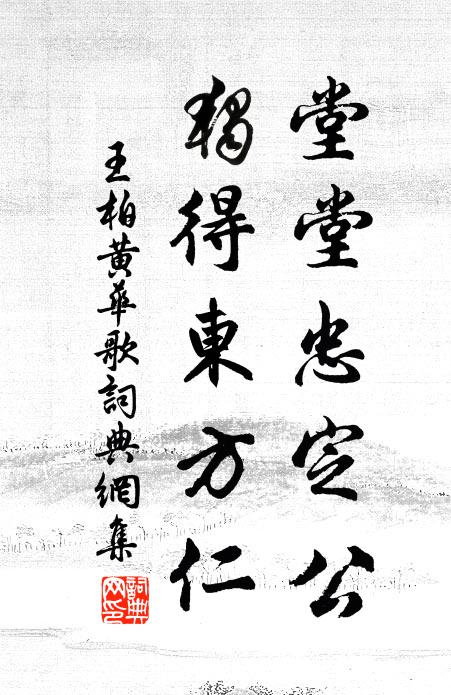 堂堂忠定公
獨得東方仁
王柏黃華歌詞典網集
詞典网印